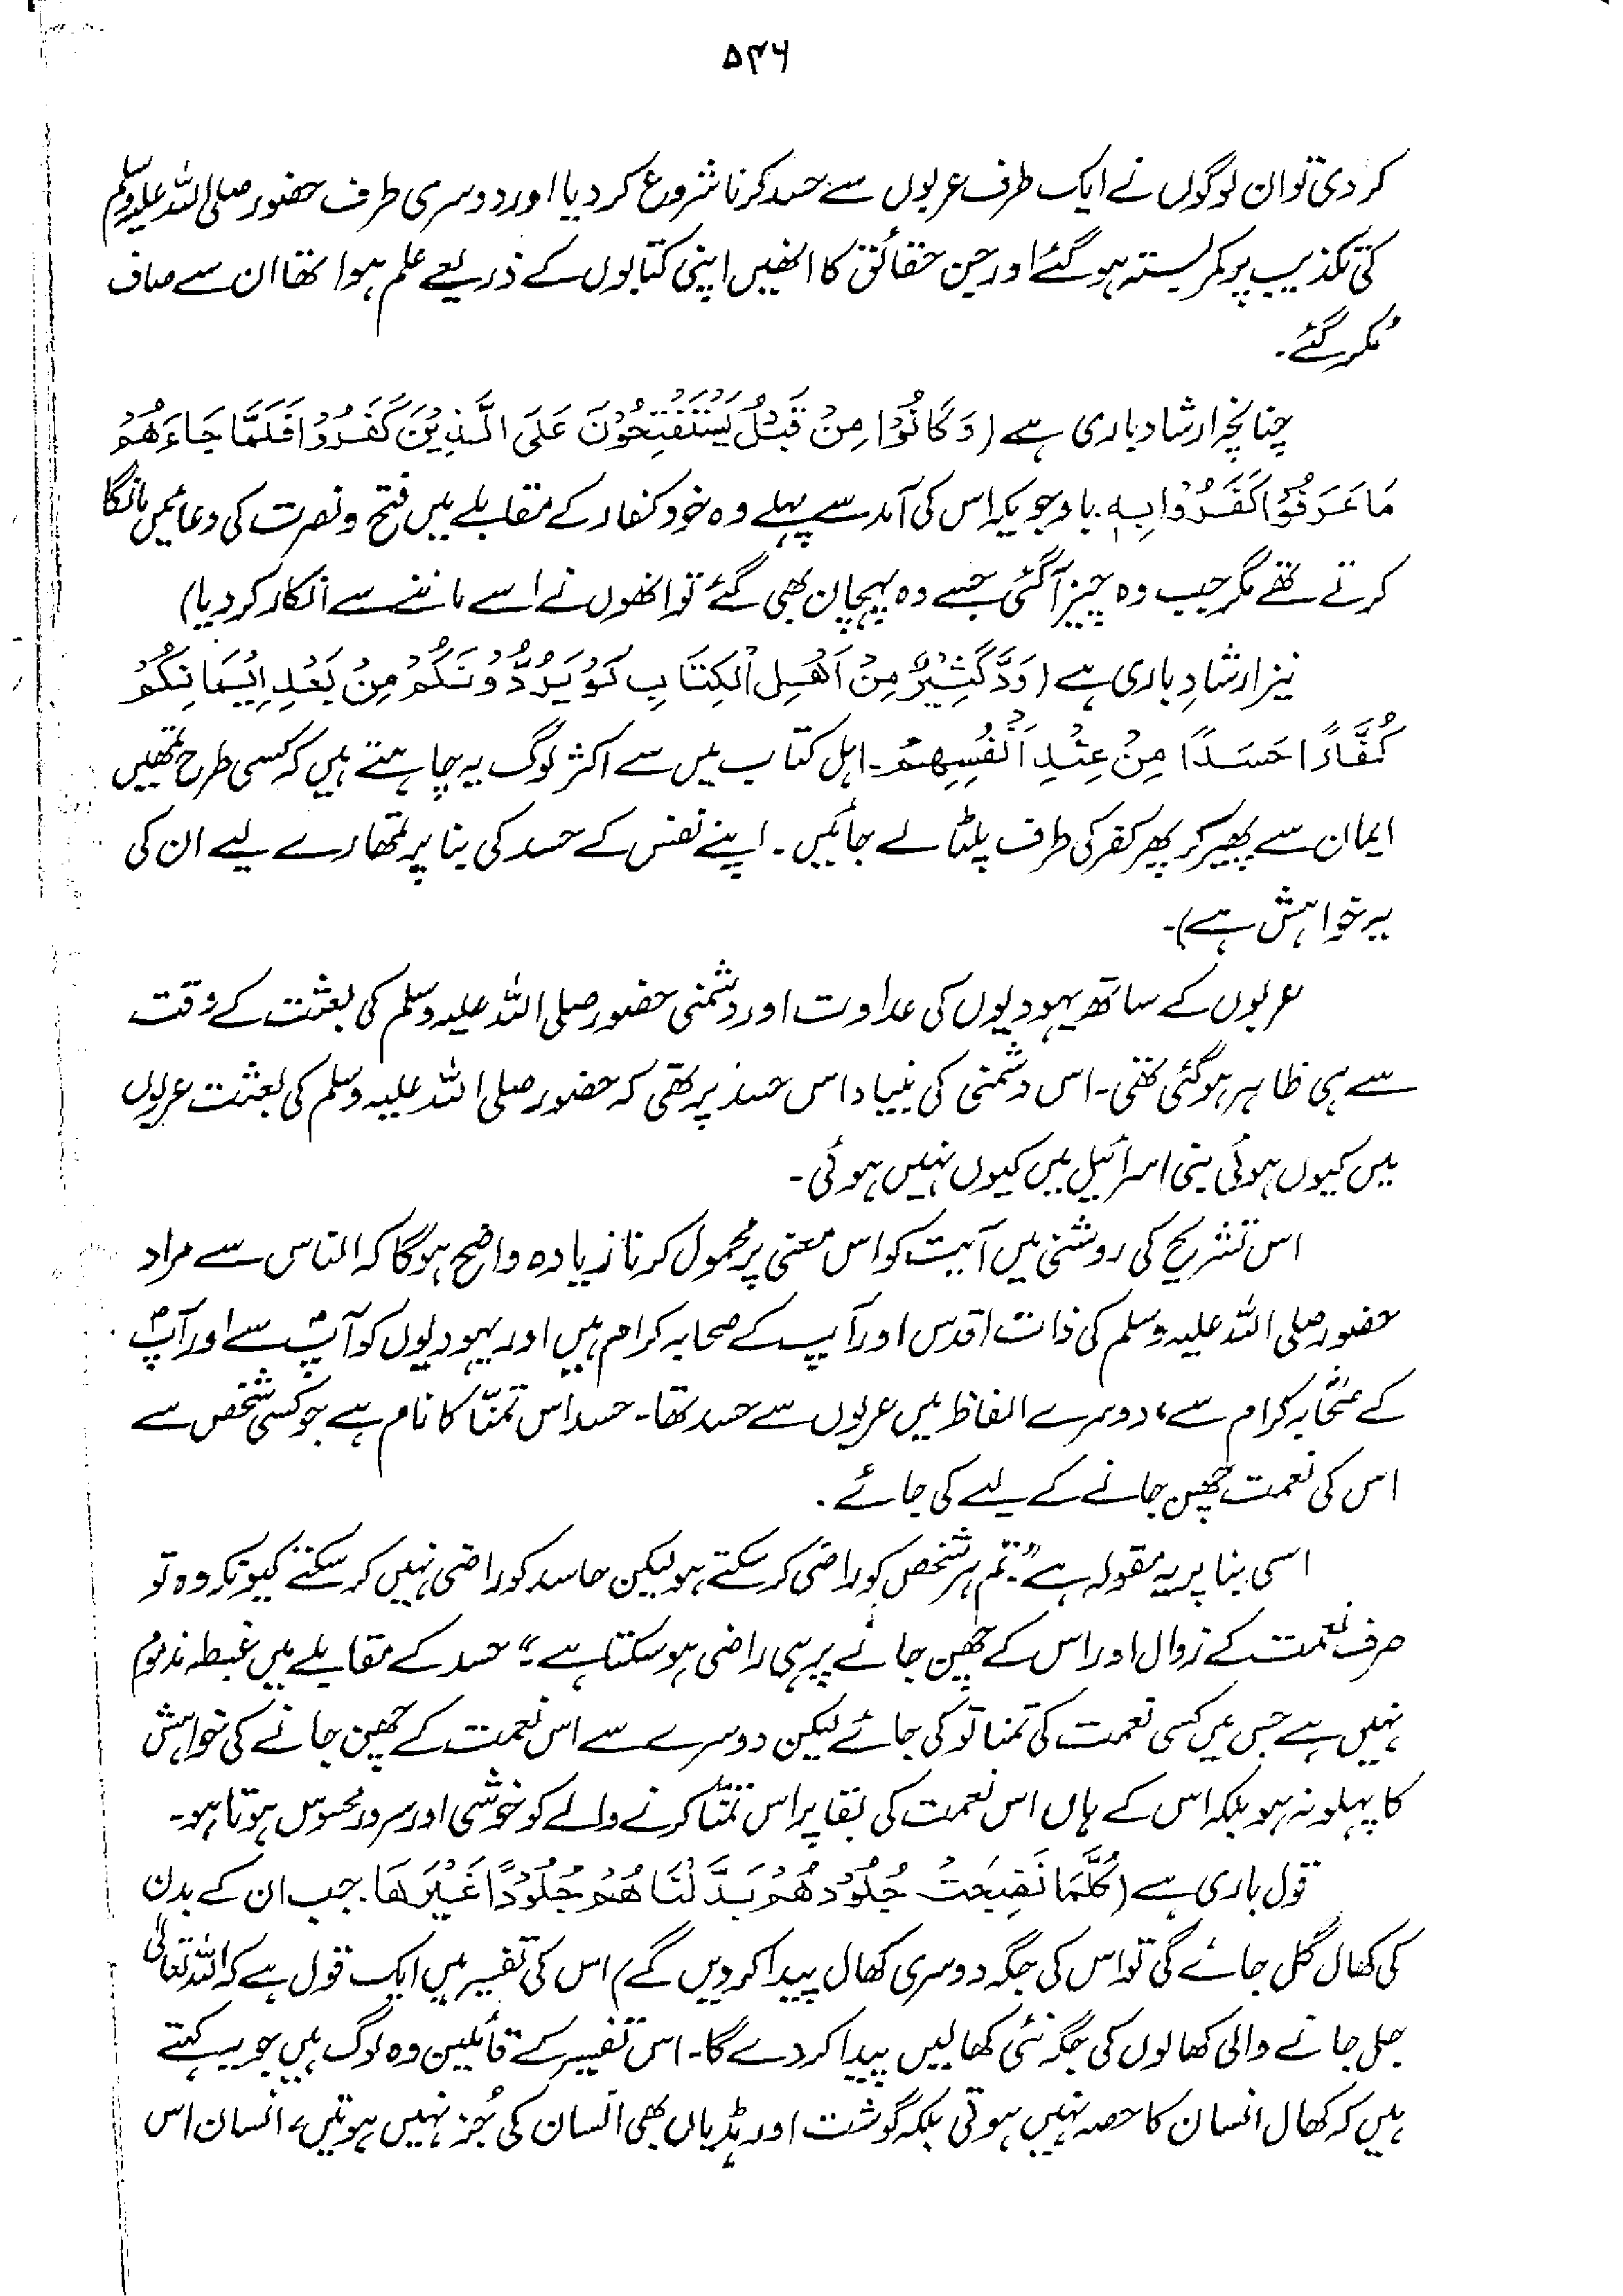 ۵۴۶
کر دی تو ان لوگوں نے ایک طرف عربوں سے حسد کرنا شروع کر دیا اور دوسری طرف حضور صلی اللہ علیہ وسلم
کی تکذیب پر کمر بستہ ہو گئے اور جن حقائق کا انھیں اپنی کتابوں کے ذریعے علم ہوا تھا ان سے صاف
مُکر گئے۔
چنانچہ ارشاد باری ہے (وَكَانُوْا مِنْ قَبْلُ يَسْتَفْتِحُوْنَ عَلَى الَّذِيْنَ كَفَرُوْا فَلَمَّا جَاءَهُمْ
مَا عَرَفُوْا كَفَرُوْا بِهٖ. باوجودیکہ اس کی آمد سے پہلے وہ خود کفار کے مقابلے میں فتح و نصرت کی دعائیں مانگا
کرتے تھے مگر جب وہ چیز آگئی جسے وہ پہچان بھی گئے تو انھوں نے اسے ماننے سے انکار کر دیا)
نیز ارشادِ باری ہے (وَدَّ كَثِيْرٌ مِنْ اَهْلِ الْكِتَابِ لَوْ يَرُدُّوْنَكُمْ مِنْ بَعْدِ اِيْمَانِكُمْ
كُفَّارًا حَسَدًا مِنْ عِنْدِ اَنْفُسِهِمْ۔ اہل کتاب میں سے اکثر لوگ یہ چاہتے ہیں کہ کسی طرح تمھیں
ایمان سے پھیر کر پھر کفر کی طرف پلٹا لے جائیں۔ اپنے نفس کے حسد کی بنا پر تمھارے لیے ان کی
یہ خواہش ہے)۔
عربوں کے ساتھ یہودیوں کی عداوت اور دشمنی حضور صلی اللہ علیہ وسلم کی بعثت کے وقت
سے ہی ظاہر ہوگئی تھی۔ اس دشمنی کی بنیاد اس حسد پر تھی کہ حضور صلی اللہ علیہ وسلم کی بعثت عربوں
میں کیوں ہوئی بنی اسرائیل میں کیوں نہیں ہوئی۔
اس تشریح کی روشنی میں آیت کو اس معنی پر محمول کرنا زیادہ واضح ہوگا کہ الناس سے مراد
حضور صلی اللہ علیہ وسلم کی ذات اقدس اور آپ کے صحابہ کرام ہیں اور یہودیوں کو آپؐ سے اور آپؐ
کے صحابہ کرام سے، دوسرے الفاظ میں عربوں سے حسد تھا۔ حسد اس تمنّا کا نام ہے جو کسی شخص سے
اس کی نعمت چھین جانے کے لیے کی جائے۔
اسی بنا پر یہ مقولہ ہے "تم ہر شخص کو راضی کر سکتے ہو لیکن حاسد کو راضی نہیں کر سکتے کیونکہ وہ تو
صرف نعمت کے زوال اور اس کے چھین جانے پر ہی راضی ہو سکتا ہے" حسد کے مقابلے میں غبطہ مذموم
نہیں ہے جس میں کسی نعمت کی تمنا تو کی جائے لیکن دوسرے سے اس نعمت کے چھین جانے کی خواہش
کا پہلو نہ ہو بلکہ اس کے ہاں اس نعمت کی بقا پر اس تمنّا کرنے والے کو خوشی اور سرور محسوس ہوتا ہو۔
قول باری ہے (كُلَّمَا نَضِجَتْ جُلُوْدُهُمْ بَدَّلْنَاهُمْ جُلُوْدًا غَيْرَهَا. جب ان کے بدن
کی کھال گل جائے گی تو اس کی جگہ دوسری کھال پیدا کر دیں گے) اس کی تفسیر میں ایک قول ہے کہ اللہ تعالیٰ
جل جانے والی کھالوں کی جگہ نئی کھالیں پیدا کر دے گا۔ اس تفسیر کے قائلین وہ لوگ ہیں جو یہ کہتے
ہیں کہ کھال انسان کا حصہ نہیں ہوتی بلکہ گوشت اور ہڈیاں بھی انسان کی جُز نہیں ہوتیں، انسان اس